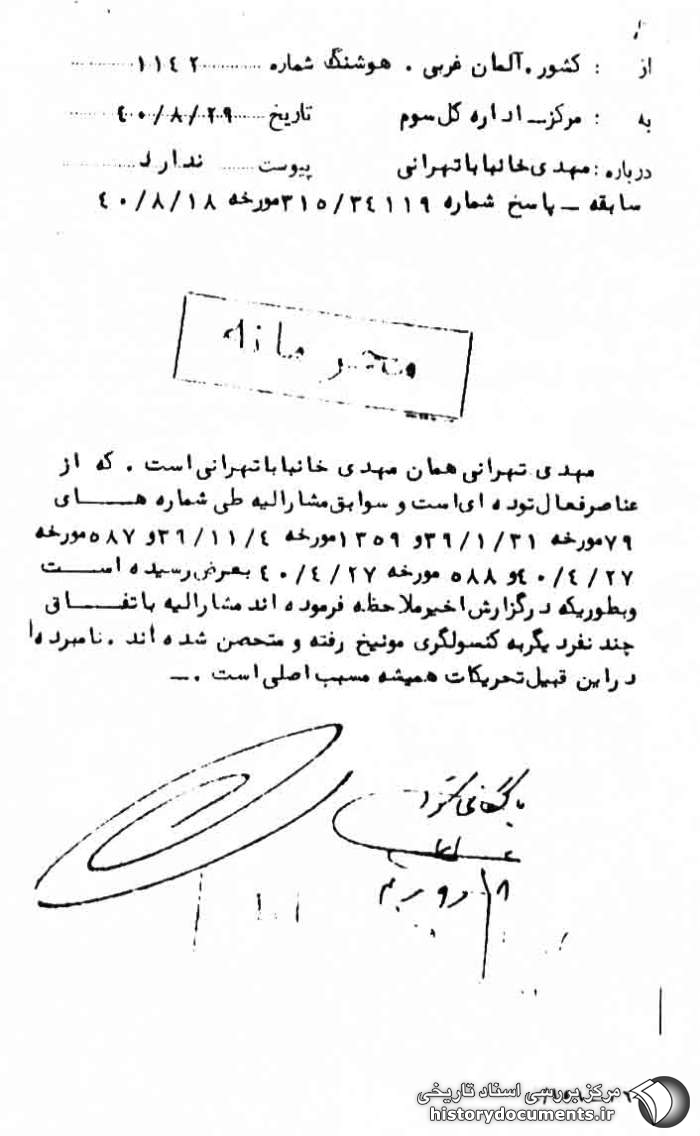 از : کشور . آلمان غربی . هوشنگ شماره ۱۱۴۲
به : مرکز ـ اداره کل سوم تاریخ ۴۰/۸/۲۹
درباره : مهدی خانبابا تهرانی پیوست ندارد
سابقه ـ پاسخ شماره ۳۱۵/۳۴۱۱۹ مورخه ۴۰/۸/۱۸
محرمانه
مهدی تهرانی همان مهدی خانبابا تهرانی است . که از
عناصر فعال توده ای است و سوابق مشارالیه طی شماره های
۷۹ مورخه ۳۹/۱/۳۱ و ۱۳۵۹ مورخه ۳۹/۱۱/۴ و ۵۸۷ مورخه
۴۰/۴/۲۷ و ۵۸۸ مورخه ۴۰/۴/۲۷ بعرض رسیده است
و بطوریکه در گزارش اخیر ملاحظه فرموده اند مشارالیه باتفاق
چند نفر دیگر به کنسولگری مونیخ رفته و متحصن شده اند . نامبرده
در این قبیل تحریکات همیشه مسبب اصلی است . ـ
بایگانی شود
مرکز بررسی اسناد تاریخی
historydocuments.ir